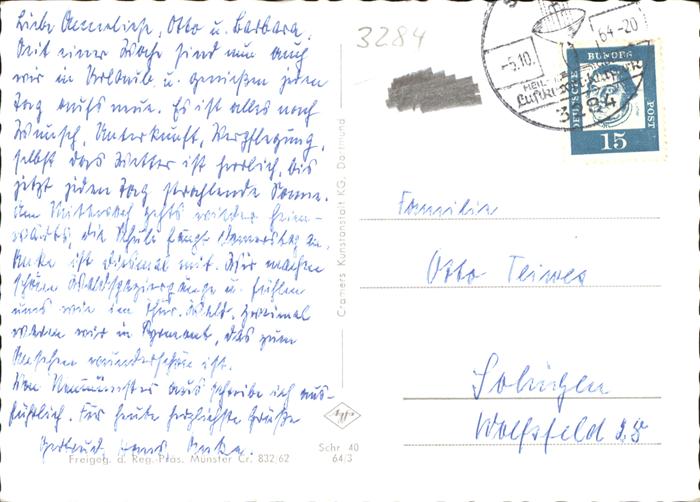 Liebe Anneliese, Otto u. Barbara.
Seit einer Woche sind nun auch
wir in Urlaub u. genießen jeden
Tag aufs neue. Es ist alles nach
Wunsch, Unterkunft, Verpflegung,
selbst das Wetter ist herrlich, bis
jetzt jeden Tag strahlende Sonne.
Am Mittwoch gehts wieder heim-
wärts, die Schule fängt Donnerstag an.
Anke ist diesmal mit. Wir machen
schöne Waldspaziergänge u. fühlen
uns wie im Thür. Wald. Zweimal
waren wir in Pyrmont, das zum
Ansehen wunderschön ist.
Von Neumünster aus schreibe ich aus-
führlich. Für heute herzlichste Grüße
Gertrud, Hans Anke.
Freigeg. d. Reg. Präs. Münster Cr. 832/62
Schr 40
64/3
Agfa
Cramers Kunstanstalt KG. Dortmund
3284
-5.10.
64-20
3284
DEUTSCHE
BUNDES
POST
15
Familie
Otto Teiwes
Solingen
Wolfsfeld